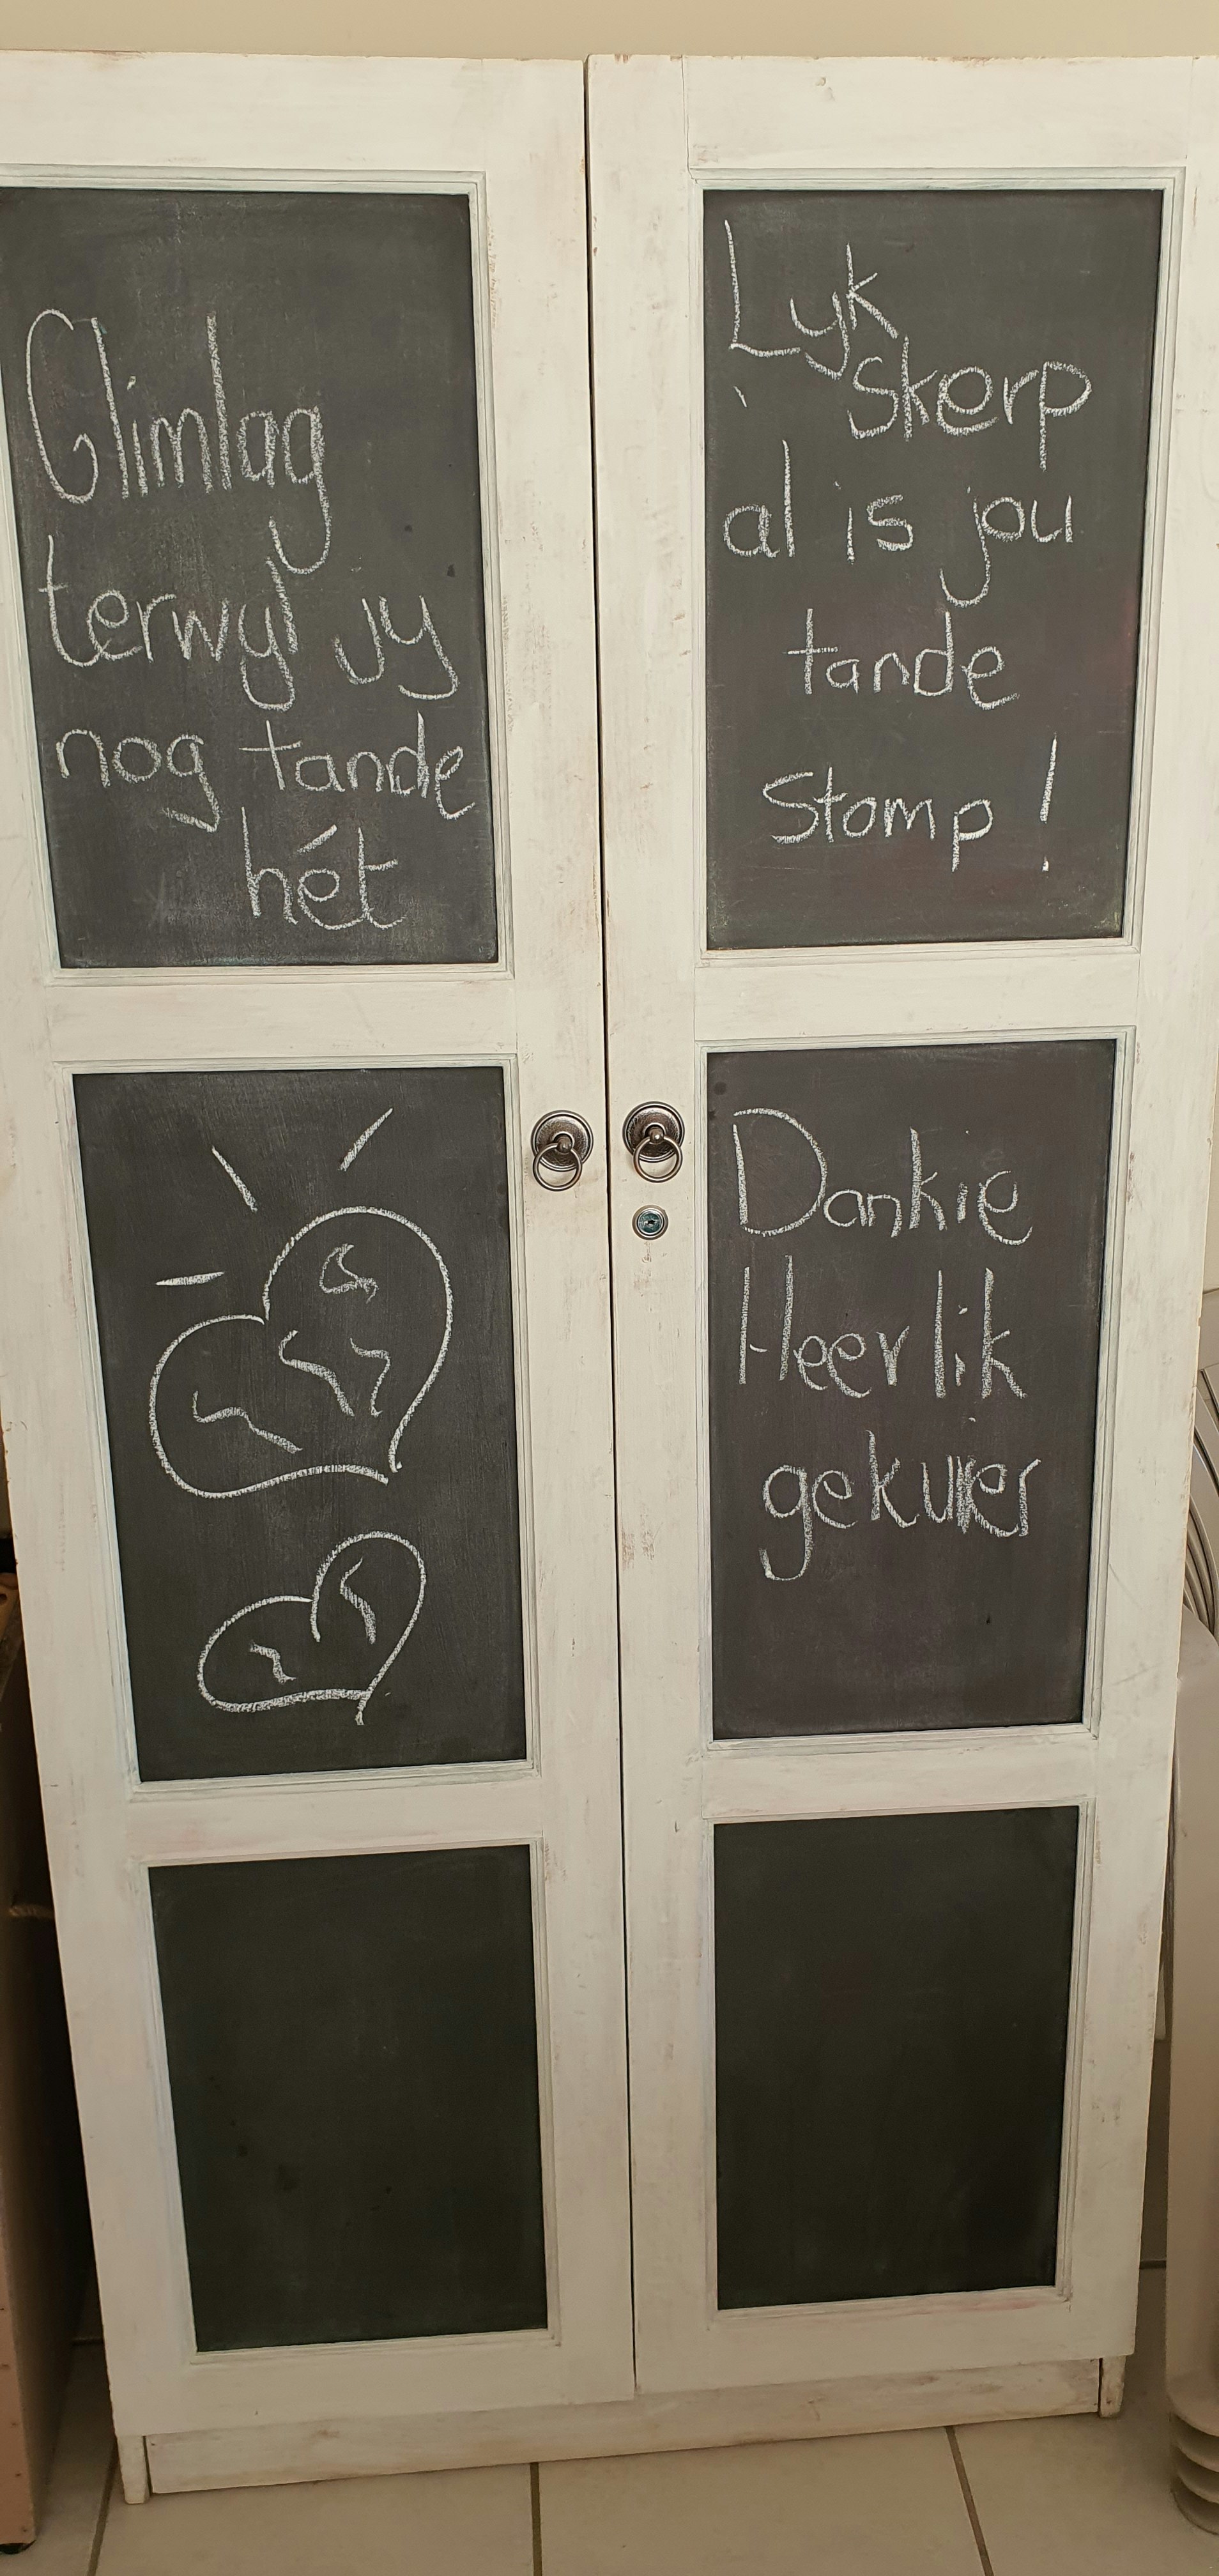 Glimlag
terwyl jy
nog tande
hét
Lyk
skerp
al is jou
tande
Stomp!
Dankie
Heerlik
gekuier